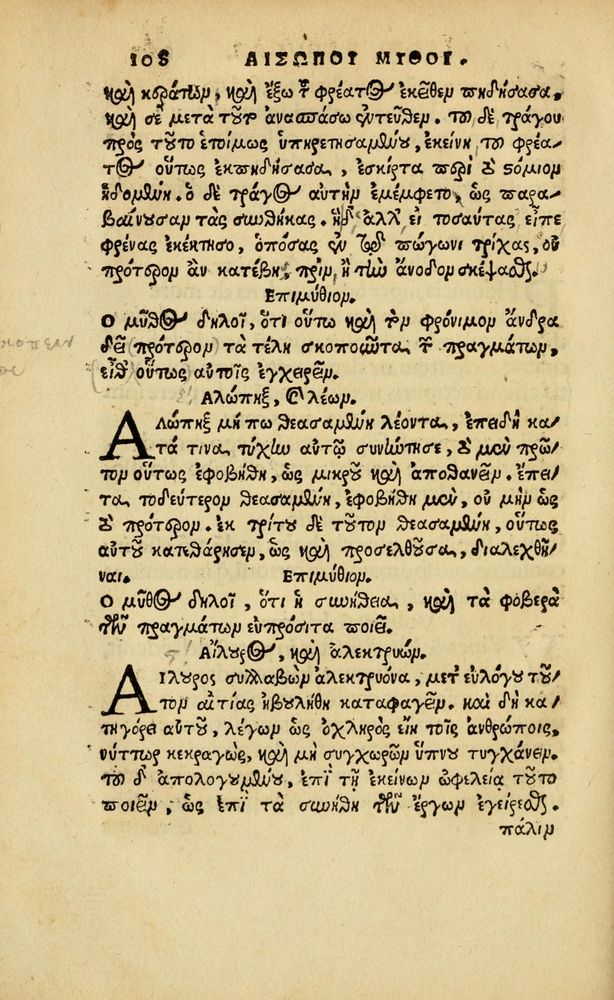 108 ΑΙΣΩΠΟΥ ΜΥΘΟΙ.
καὶ κεράτων, καὶ ἔξω τοῦ φρέατος ἐκεῖθεν πηδήσασα,
καὶ σὲ μετὰ τοῦτ ἀνασπάσω ἐντεῦθεν. τοῦ δὲ τράγου
πρὸς τοῦτο ἑτοίμως ὑπηρετησαμένου, ἐκείνη τοῦ φρέα-
τος οὕτως ἐκπηδήσασα, ἐσκίρτα περὶ τὸ στόμιον
ἡδομένη. ὁ δὲ τράγος αὐτὴν ἐμέμφετο, ὡς παρα-
βαίνουσαν τὰς συνθήκας. ἡ δ' ἀλλ' εἰ τοσαύτας εἶπε
φρένας ἐκέκτησο, ὁπόσας ἐν τῷ πώγωνι τρίχας, οὐ
πρότερον ἂν κατέβης, πρὶν ἢ τὴν ἄνοδον σκέψασθαι.
Επιμύθιον.
Ο μῦθος δηλοῖ, ὅτι οὕτω καὶ τὸν φρόνιμον ἄνδρα
δεῖ πρότερον τὰ τέλη σκοποῦντα τῶν πραγμάτων,
εἶθ' οὕτως αὐτοῖς ἐγχειρεῖν.
Αλώπηξ, καὶ λέων.
Αλώπηξ μήπω θεασαμένη λέοντα, ἐπειδὴ κα-
τά τινα τύχην αὐτῷ συνήντησε, τὸ μὲν πρῶ-
τον οὕτως ἐφοβήθη, ὡς μικροῦ καὶ ἀποθανεῖν. ἔπει-
τα τοδεύτερον θεασαμένη, ἐφοβήθη μὲν, οὐ μὴν ὡς
τὸ πρότερον. ἐκ τρίτου δὲ τοῦτον θεασαμένη, οὕτως
αὐτοῦ κατεθάρσησεν, ὡς καὶ προσελθοῦσα, διαλεχθῆ-
ναι. Επιμύθιον.
Ο μῦθος δηλοῖ, ὅτι ἡ συνήθεια, καὶ τὰ φοβερὰ
τῶν πραγμάτων εὐπρόσιτα ποιεῖ.
Αἴλουρος, καὶ ἀλεκτρυών.
Αίλουρος συλλαβὼν ἀλεκτρυόνα, μετ' εὐλόγου τοῦ-
τον αἰτίας ἠβουλήθη καταφαγεῖν. καὶ δὴ κα-
τηγόρει αὐτοῦ, λέγων ὡς ὀχληρὸς εἴη τοῖς ἀνθρώποις,
νύττωρ κεκραγὼς, καὶ μὴ συγχωρῶν ὕπνου τυγχάνειν.
τοῦ δ' ἀπολογουμένου, ἐπὶ τῇ ἐκείνων ὠφελείᾳ τοῦτο
ποιεῖν, ὡς ἐπὶ τὰ συνήθη τῶν ἔργων ἐγείρεσθαι.
πάλιν